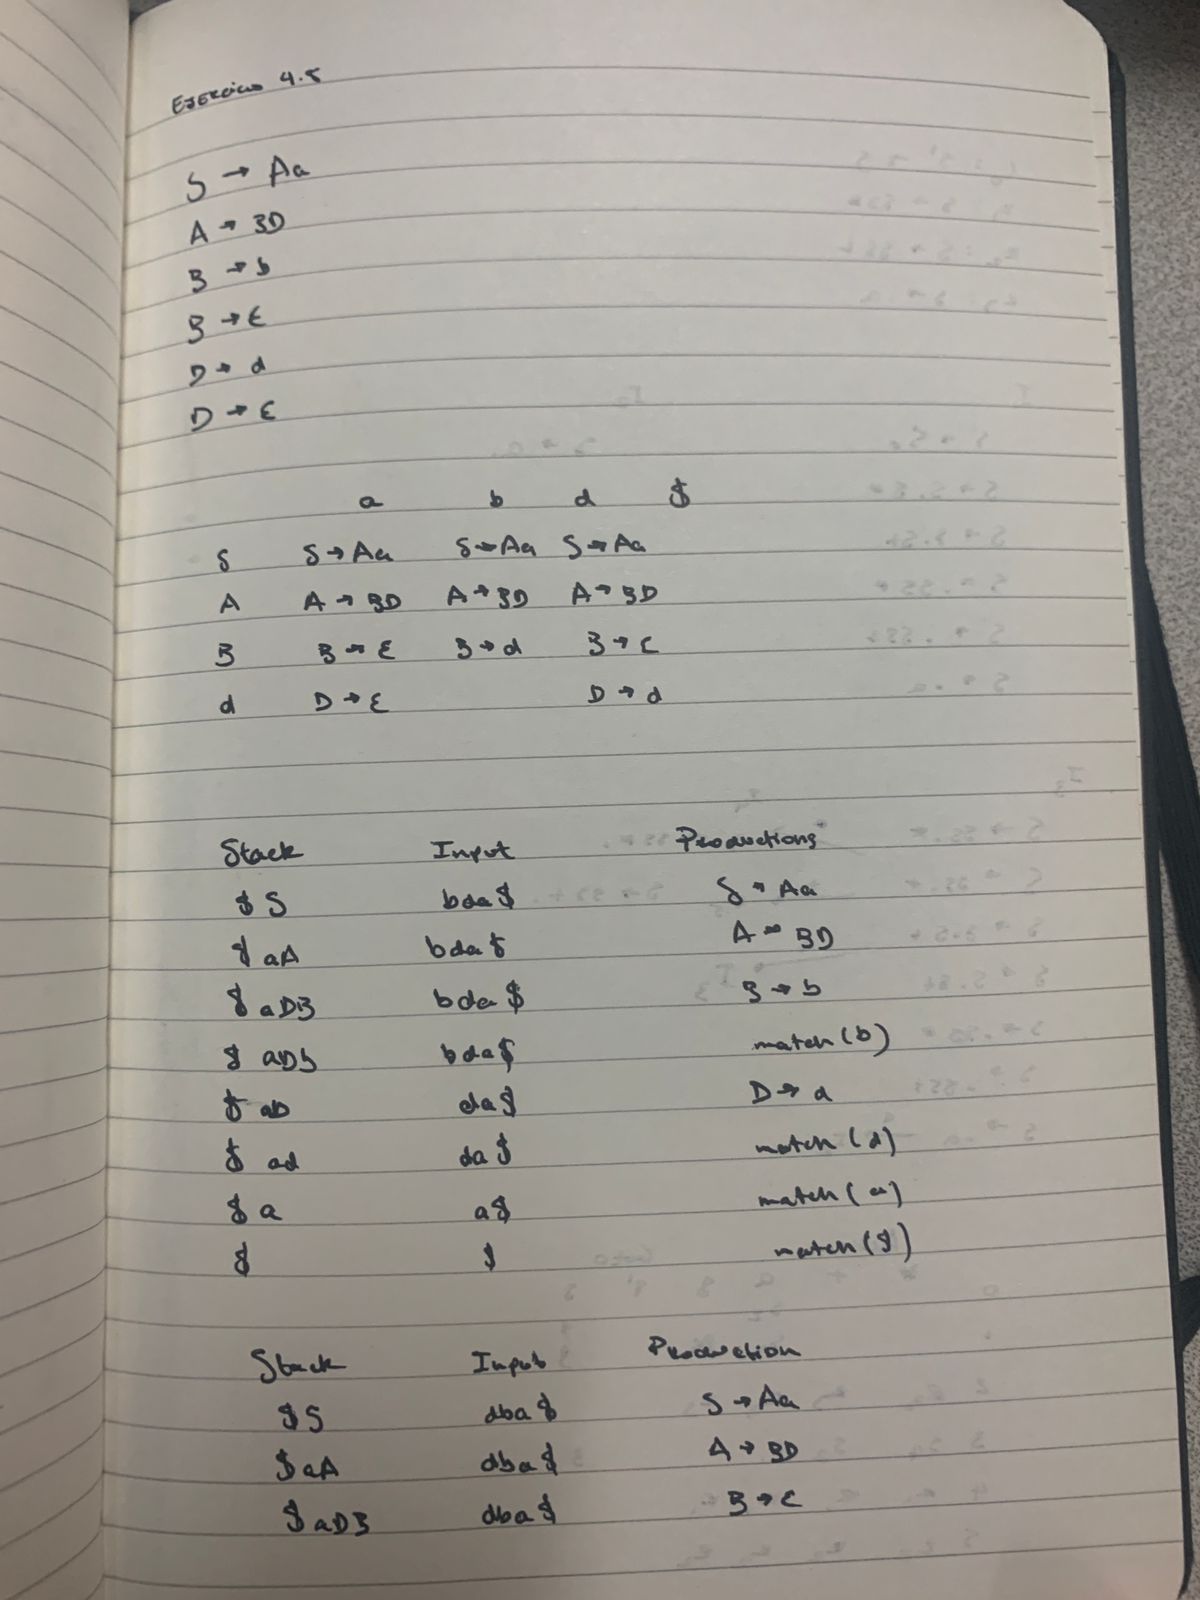 Ejercicio 4.5
S → Aa
A → BD
B → b
B → ε
D → d
D → ε
a b d $
S S → Aa S → Aa S → Aa
A A → BD A → BD A → BD
B B → ε B → d B → ε
d D → ε D → d
Stack Input Productions
$ S bda$ S → Aa
$ aA bda$ A → BD
$ aDB bda$ B → b
$ aDb bda$ match(b)
$ aD da$ D → d
$ ad da$ match(d)
$ a a$ match(a)
$ $ match($)
Stack Input Production
$S dba$ S → Aa
$aA dba$ A → BD
$aDB dba$ B → ε